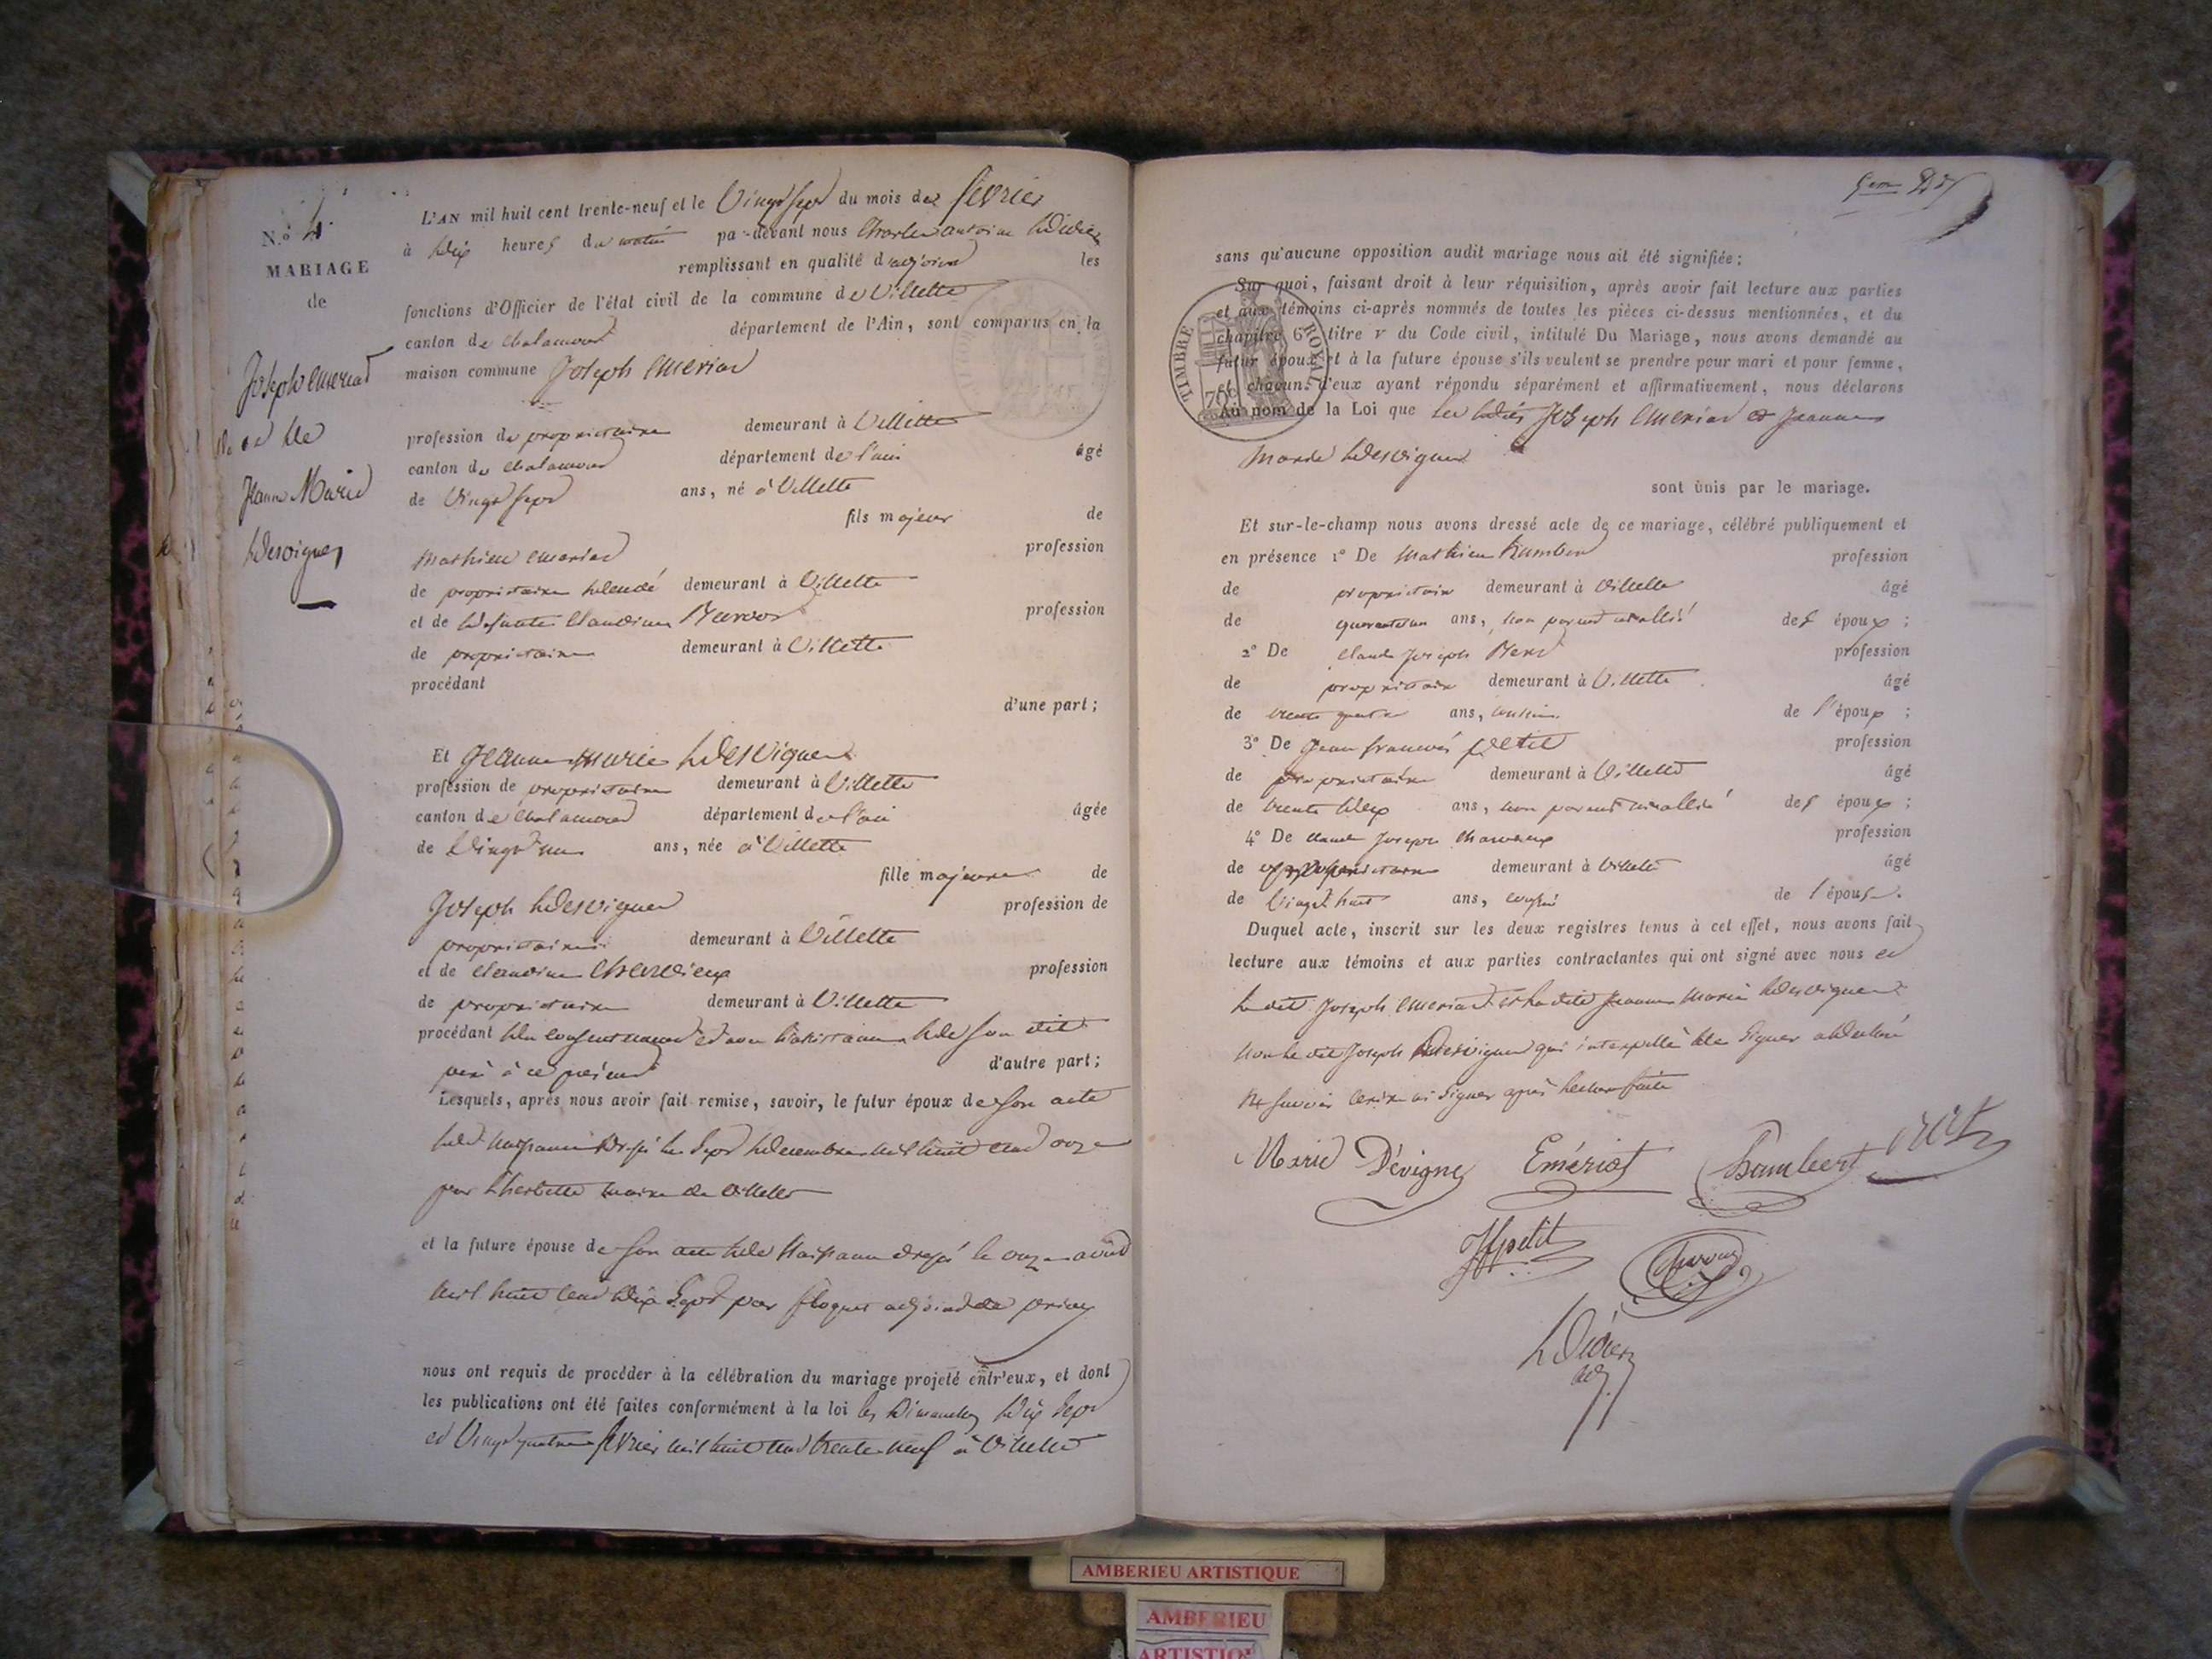 N.º 4.
MARIAGE
de
Joseph Emeriat
et de
Jeanne Marie
Desvignes
L'AN mil huit cent trente-neuf et le Vingt sept du mois de février
à dix heures du matin par-devant nous Charles antoine Didier
remplissant en qualité d'adjoint les
fonctions d'Officier de l'état civil de la commune de Villette
canton de chalamont département de l'Ain, sont comparus en la
maison commune Joseph Emeriat
profession de propriétaire demeurant à Villette
canton de chalamont département de l'ain âgé
de Vingt sept ans, né à Villette
fils majeur de
Mathieu Emeriat profession
de propriétaire demeurant à Villette
et de défunte Claudine profession
de propriétaire demeurant à Villette
procédant
d'une part;
Et Jeanne Marie Desvignes
profession de propriétaire demeurant à Villette
canton de chalamont département de l'ain âgée
de Vingt un ans, née à Villette
fille majeure de
Joseph Desvignes profession de
propriétaire demeurant à Villette
et de Claudine Charvieux profession
de propriétaire demeurant à Villette
procédant du consentement et avec l'assistance de son dit
père à ce présent d'autre part;
Lesquels, après nous avoir fait remise, savoir, le futur époux de son acte
de naissance dressé le sept décembre mil huit cent onze
par maire de Villette
et la future épouse de son acte de Naissance dressé le onze août
mil huit cent dix sept par floquet adjoint de priay
nous ont requis de procéder à la célébration du mariage projeté entr'eux, et dont
les publications ont été faites conformément à la loi les Dimanches dix sept
et Vingt quatre février mil huit cent trente neuf à Villette
sans qu'aucune opposition audit mariage nous ait été signifiée;
Sur quoi, faisant droit à leur réquisition, après avoir fait lecture aux parties
et aux témoins ci-après nommés de toutes les pièces ci-dessus mentionnées, et du
chapitre 6e titre v du Code civil, intitulé Du Mariage, nous avons demandé au
futur époux et à la future épouse s'ils veulent se prendre pour mari et pour femme,
et chacun d'eux ayant répondu séparément et affirmativement, nous déclarons
Au nom de la Loi que les dits Joseph Emeriat et Jeanne
Marie Desvignes
sont unis par le mariage.
TIMBRE ROYAL
70c
Et sur-le-champ nous avons dressé acte de ce mariage, célébré publiquement et
en présence 1º De Mathieu Rambert profession
de propriétaire demeurant à Villette âgé
de quarante un ans, non parent ni allié des époux;
2º De Claude Joseph profession
de propriétaire demeurant à Villette âgé
de trente quatre ans, cousin de l'époux;
3º De Jean françois petit profession
de propriétaire demeurant à Villette âgé
de trente deux ans, non parent ni allié des époux;
4º De Claude Joseph Charvieux profession
de propriétaire demeurant à Villette âgé
de Vingt huit ans, cousin de l'épouse.
Duquel acte, inscrit sur les deux registres tenus à cet effet, nous avons fait
lecture aux témoins et aux parties contractantes qui ont signé avec nous et
le dit Joseph Emeriat et la dite Jeanne Marie Desvignes
non le dit Joseph Desvignes qui interpellé de signer a déclaré
ne savoir écrire ni signer après lecture faite
Marie Dévigne Emériat Rambert
JF petit
Didier
adj.
AMBERIEU ARTISTIQUE
AMBERIEU
ARTISTIQ